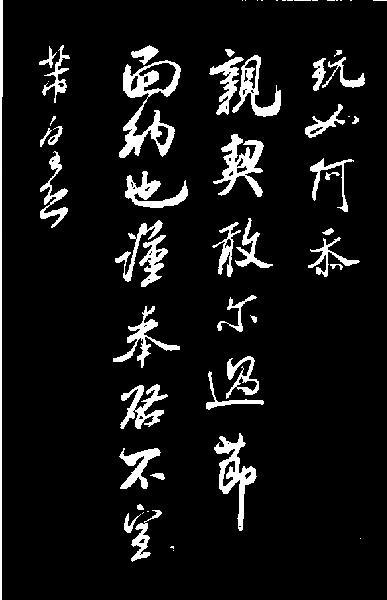 玩如何忝
親契敢尔過節
面納也謹奉啓不宣
芾皇恐